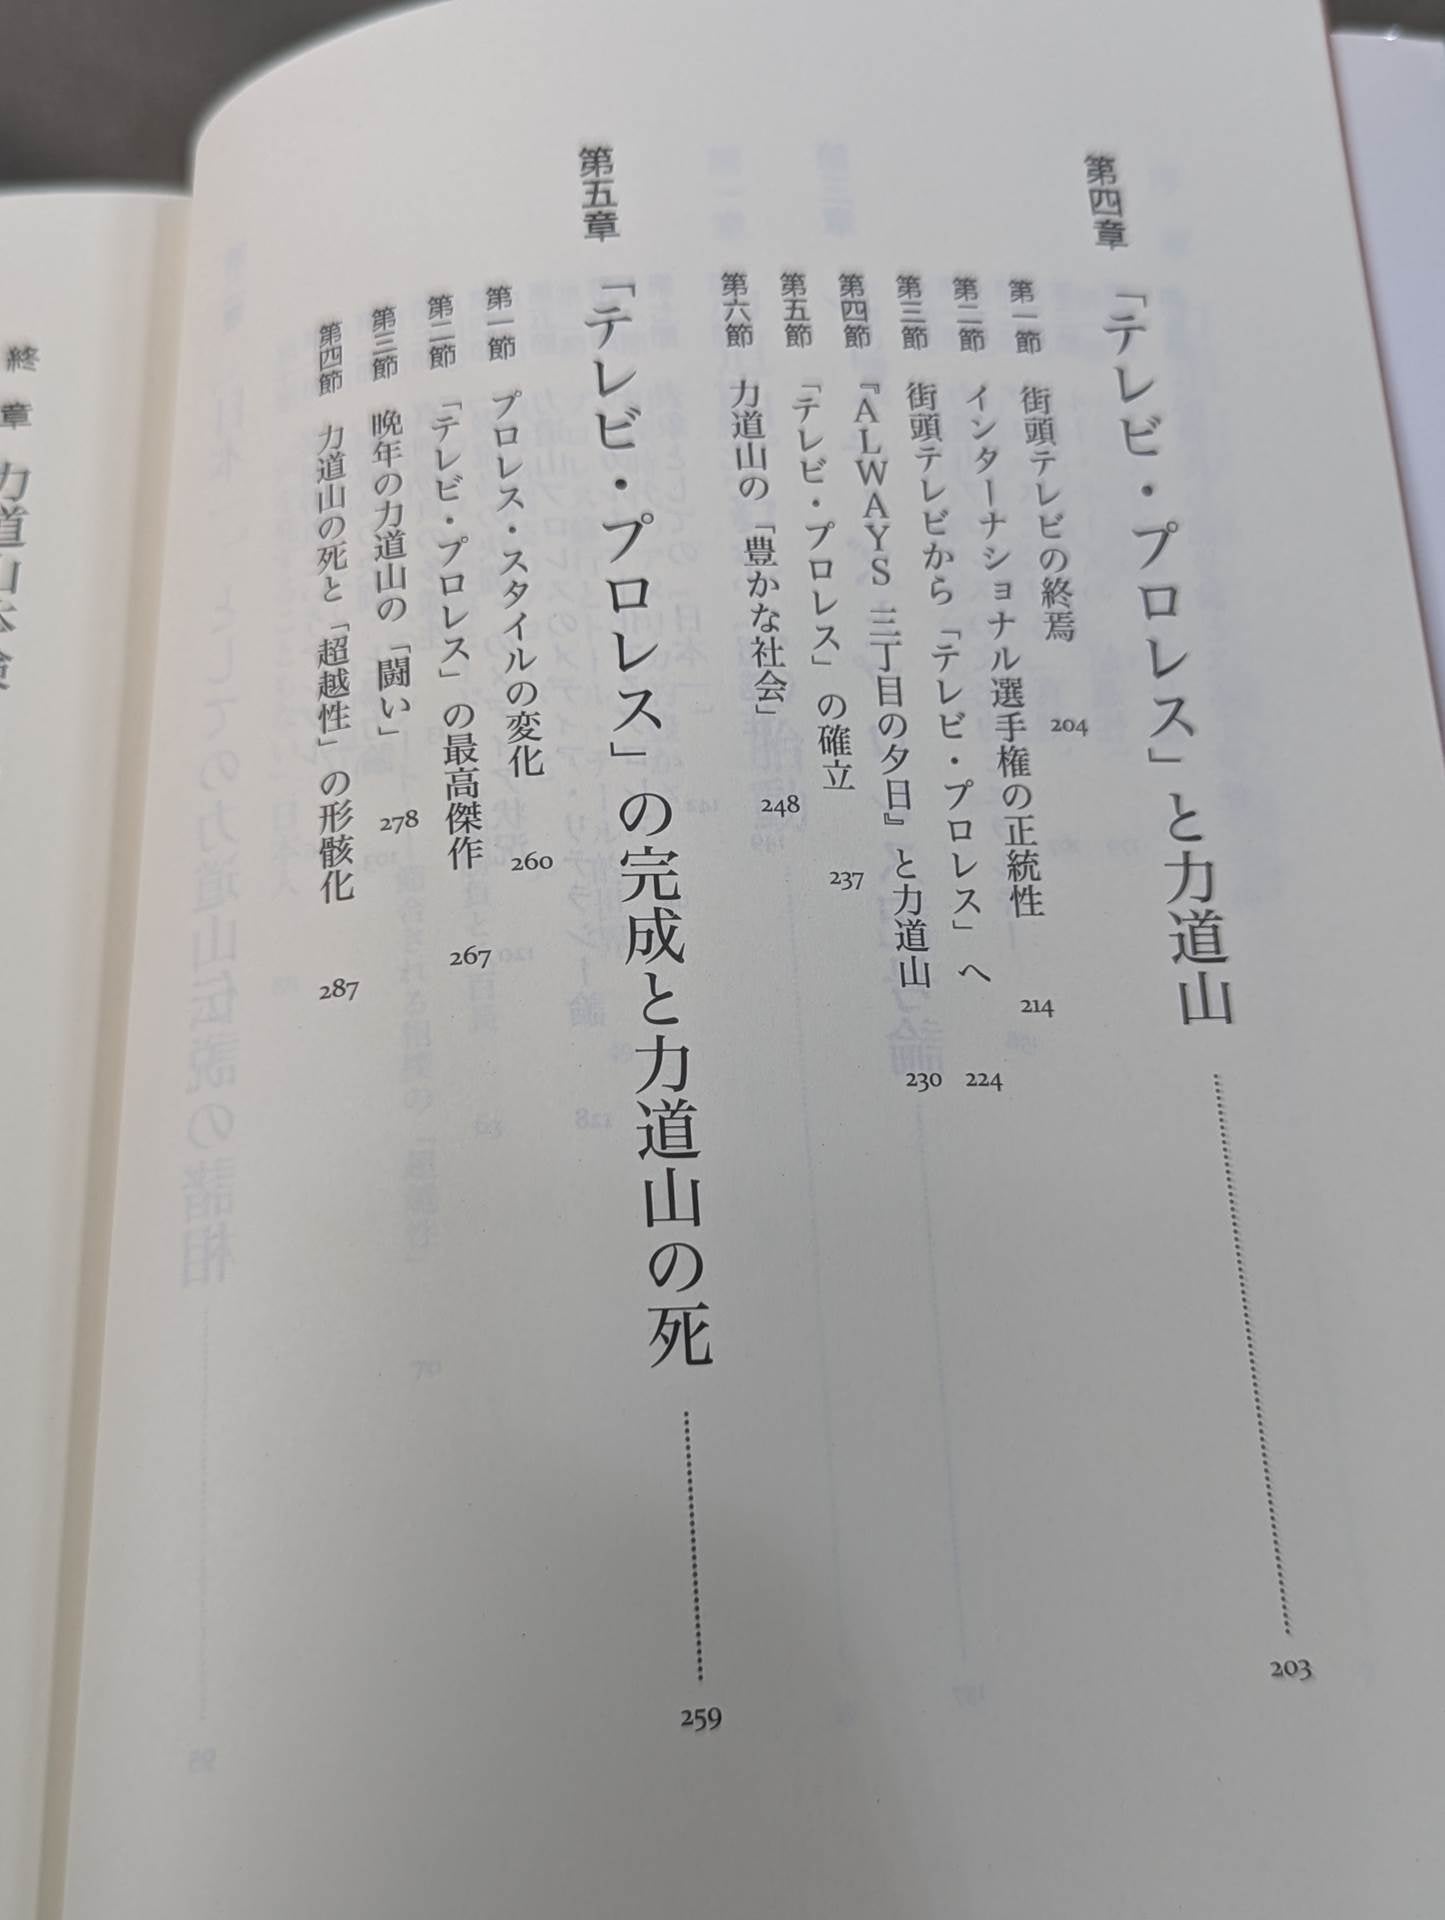 第四章 「テレビ・プロレス」と力道山 203
第一節 街頭テレビの終焉 204
第二節 インターナショナル選手権の正統性 214
第三節 街頭テレビから「テレビ・プロレス」へ 224
第四節 『ALWAYS 三丁目の夕日』と力道山 230
第五節 「テレビ・プロレス」の確立 237
第六節 力道山の「豊かな社会」 248
第五章 「テレビ・プロレス」の完成と力道山の死 259
第一節 プロレス・スタイルの変化 260
第二節 「テレビ・プロレス」の最高傑作 267
第三節 晩年の力道山の「闘い」 278
第四節 力道山の死と「超越性」の形骸化 287
終章 力道山